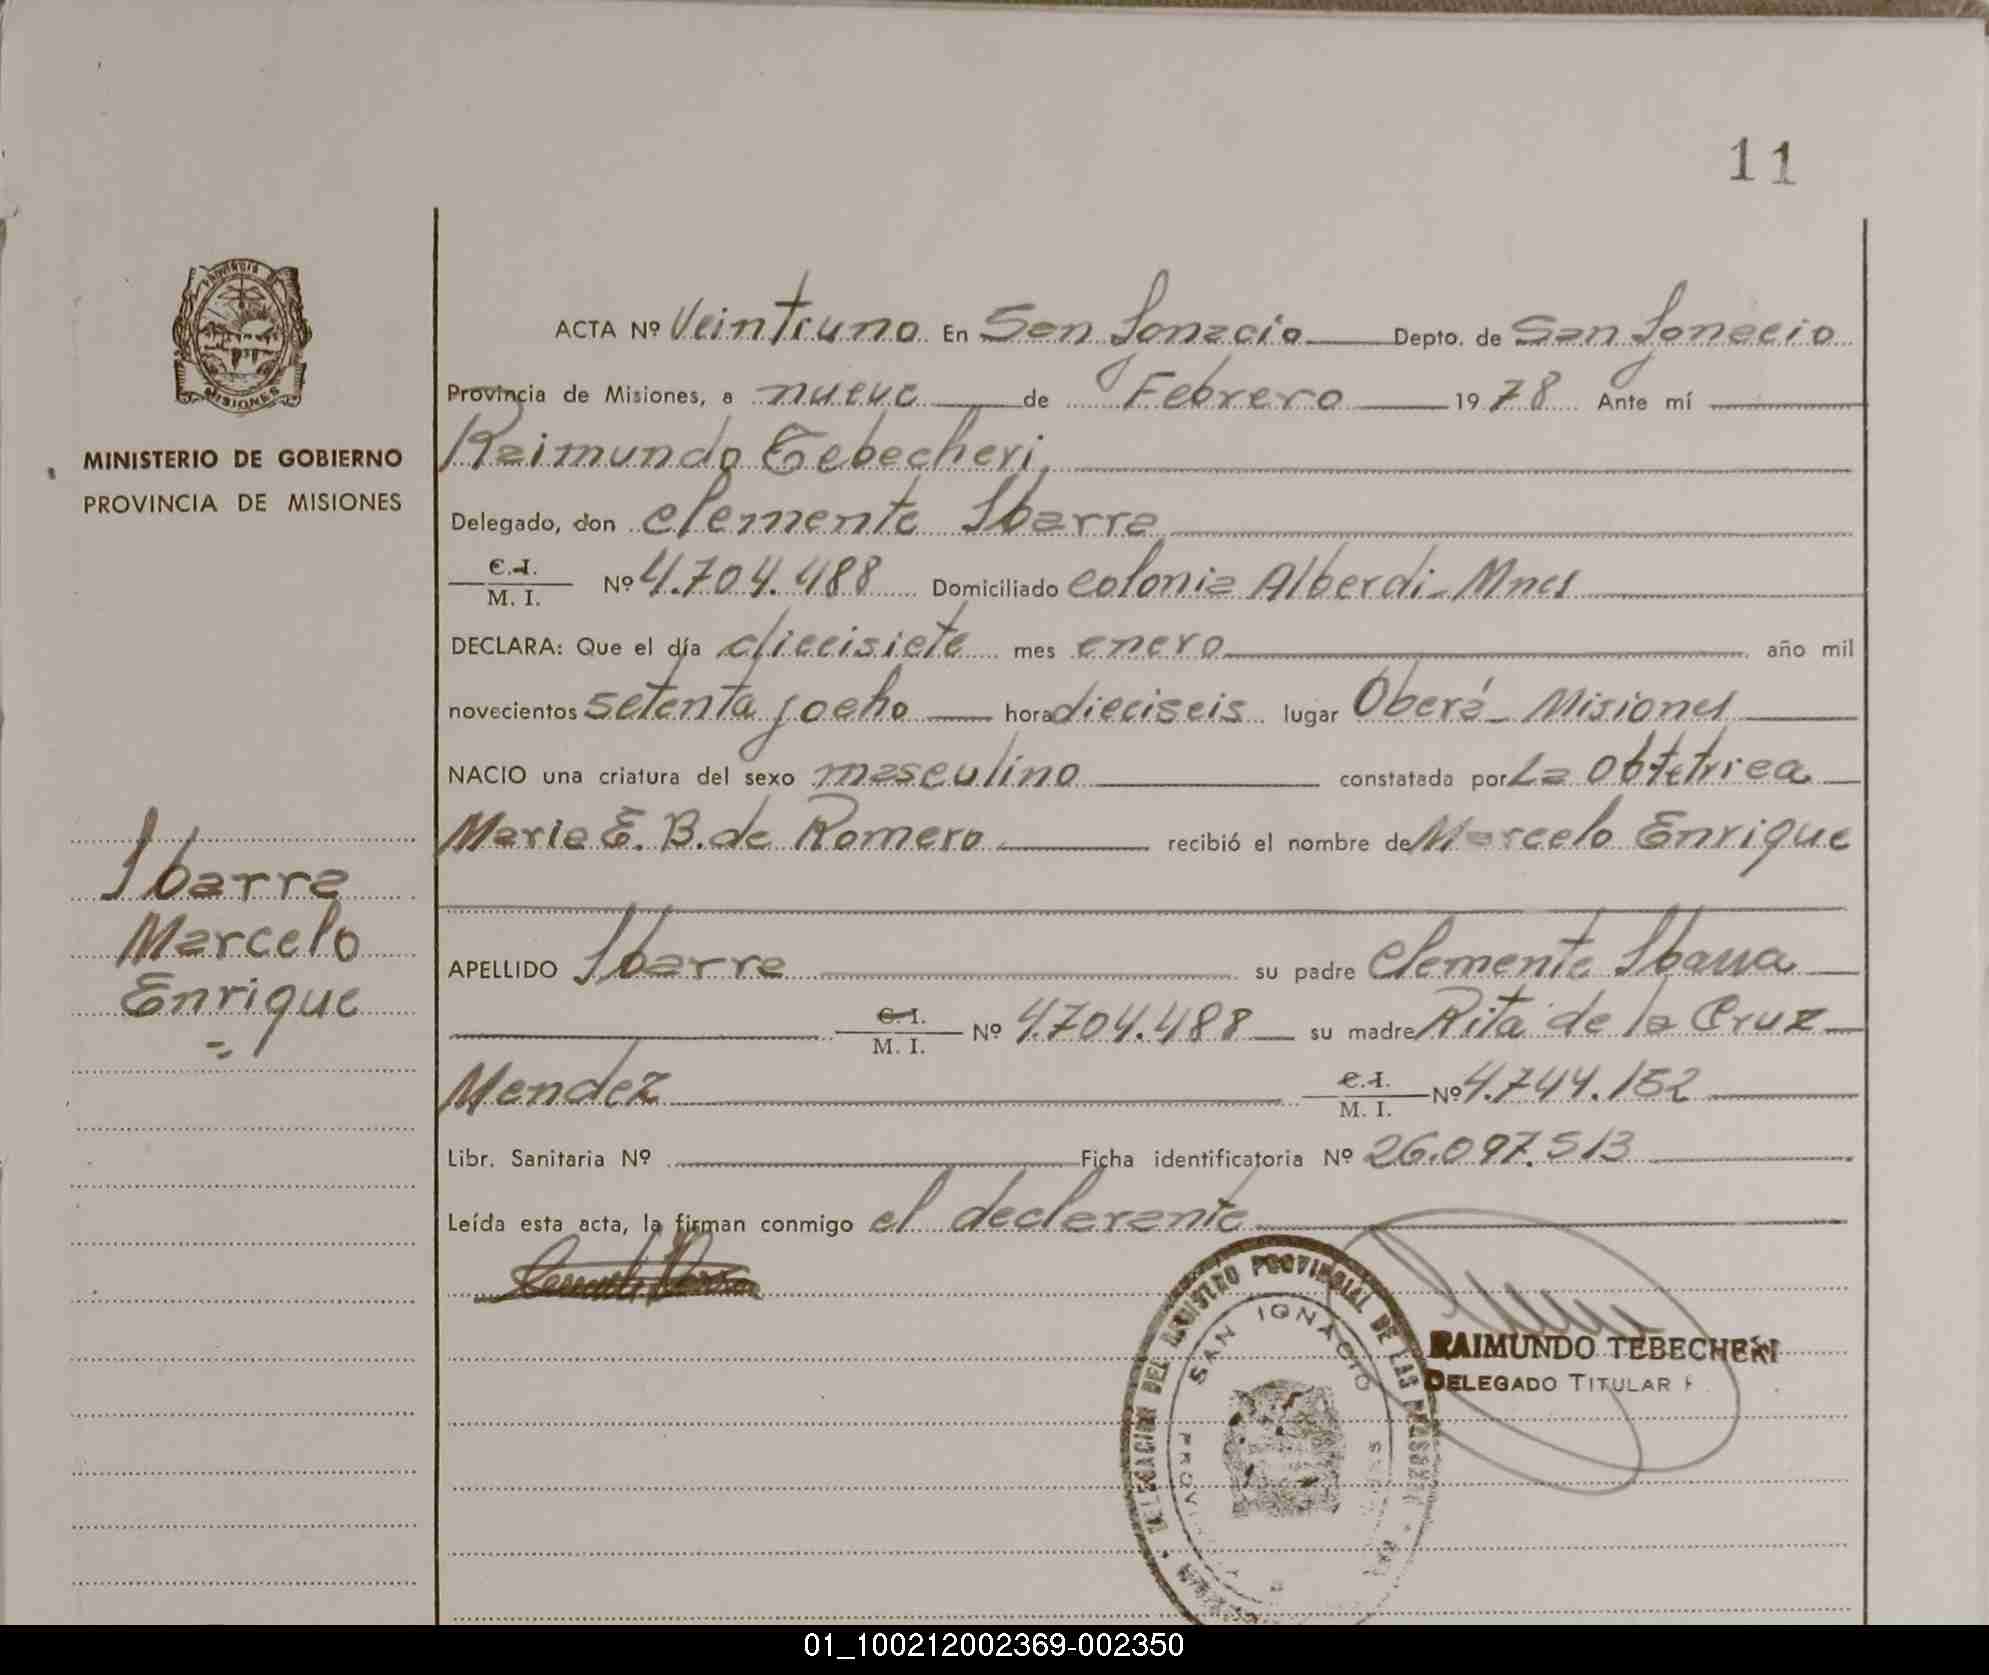 11
ACTA Nº Veintiuno En San Ignacio Depto. de San Ignacio
Provincia de Misiones, a nueve de Febrero 1978 Ante mí
Raimundo Tebecheri
Delegado, don Clemente Ibarra
C.I.
M. I. Nº 4.704.488 Domiciliado Colonia Alberdi - Mnes
DECLARA: Que el día diecisiete mes enero año mil
novecientos setenta y ocho hora dieciseis lugar Oberá - Misiones
NACIO una criatura del sexo masculino constatada por La Obtetrica
Maria E. B. de Romero recibió el nombre de Marcelo Enrique
APELLIDO Ibarra su padre Clemente Ibarra
C.I.
M. I. Nº 4.704.488 su madre Rita de la Cruz
Mendez C.I.
M. I. Nº 4.744.152
Libr. Sanitaria Nº Ficha identificatoria Nº 26.097.513
Leída esta acta, la firman conmigo el declarante
PROVINCIA DE
MISIONES
MINISTERIO DE GOBIERNO
PROVINCIA DE MISIONES
Ibarra
Marcelo
Enrique
DELEGACION DEL REGISTRO PROVINCIAL DE LAS PERSONAS
SAN IGNACIO
RAIMUNDO TEBECHERI
DELEGADO TITULAR
01_100212002369-002350